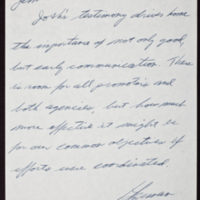 Josh's testimony drives home
the importance of not only good,
but early communication. There
is room for all promotors and
both agencies, but how much
more effective it might be
for our common objectives if
efforts were coordinated